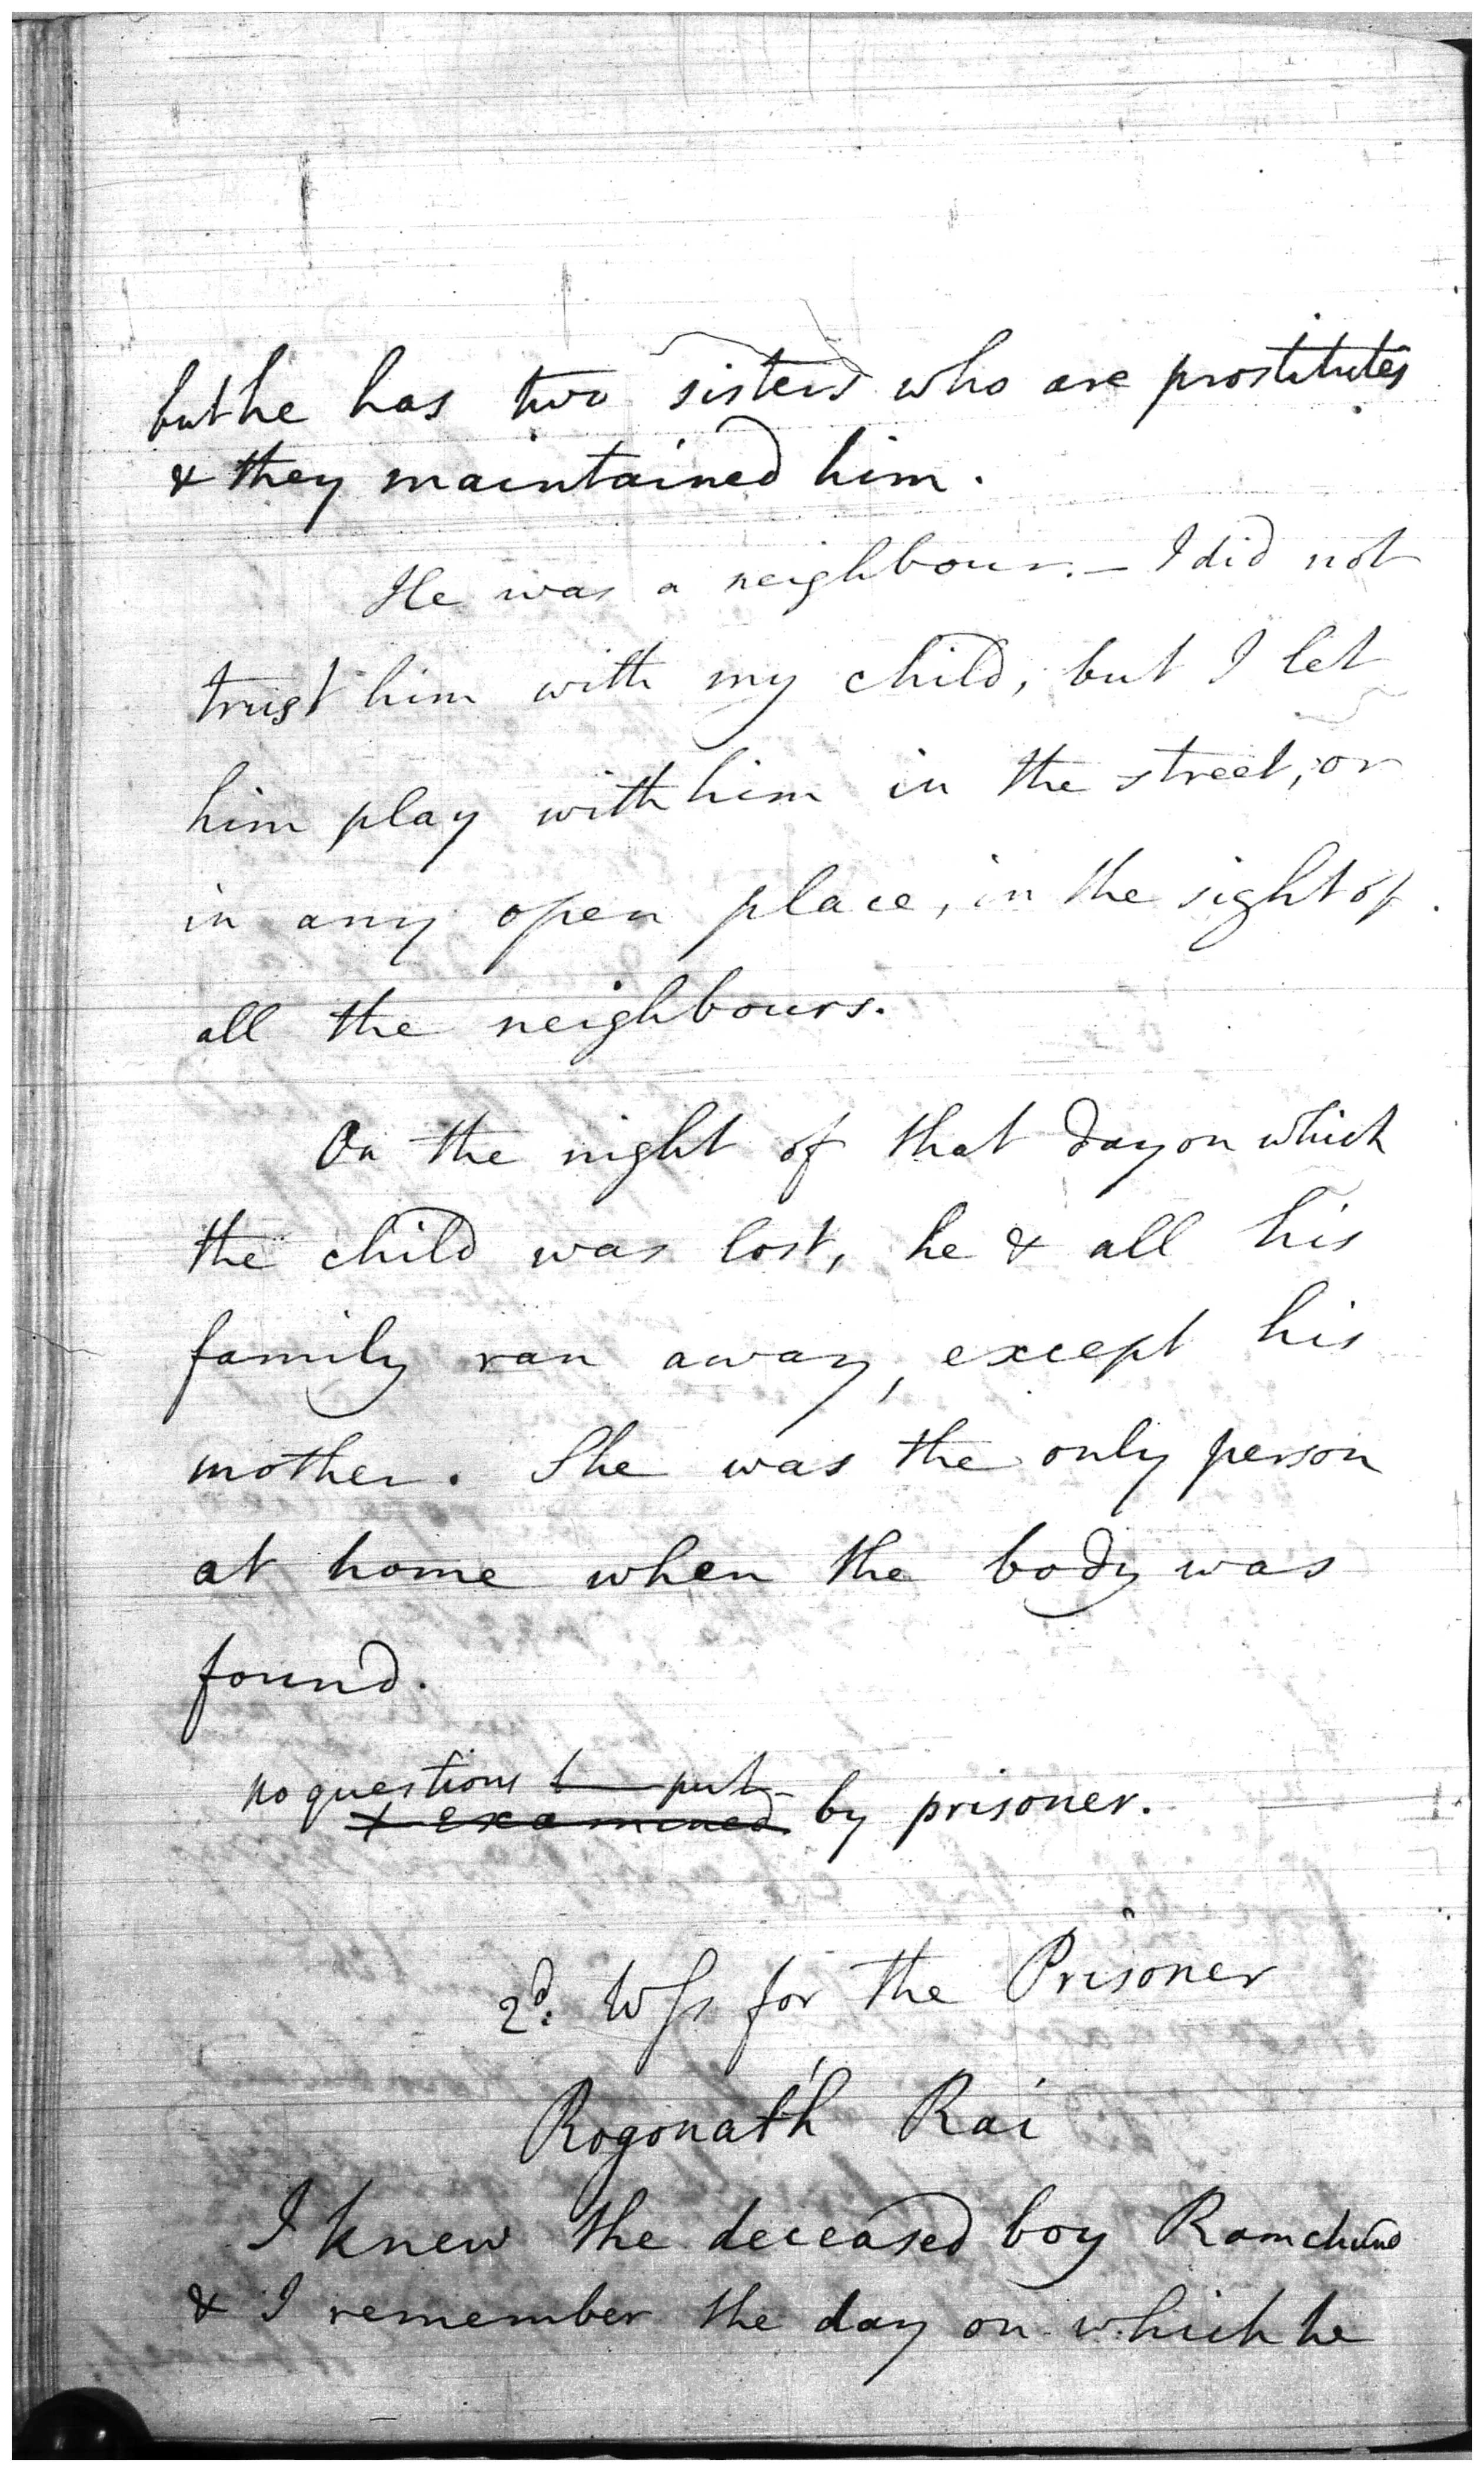 but he has two sisters who are prostitutes
& they maintained him.
He was a neighbour. — I did not
trust him with my child, but I let
him play with him in the street, or
in any open place, in the sight of
all the neighbours.
On the night of that day on which
the child was lost, he & all his
family ran away, except his
mother. She was the only person
at home when the body was
found.
no questions put
X examined by prisoner.
2d. Wss for the Prisoner
Rogonath Rai
I knew the deceased boy Ramchund
& I remember the day on which he